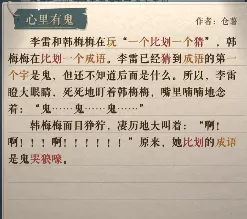 心里有鬼
作者：仓薯
李雷和韩梅梅在玩“一个比划一个猜”，韩
梅梅在比划一个成语。李雷已经猜到成语的第一
个字是鬼，但还不知道后面是什么。所以，李雷
瞪大眼睛，死死地盯着韩梅梅，嘴里喃喃地念
着：“鬼……鬼……鬼……”
韩梅梅面目狰狞，凄厉地大叫着：“啊！
啊！！！啊！！！！！！！”原来，她比划的成语
是鬼哭狼嚎。